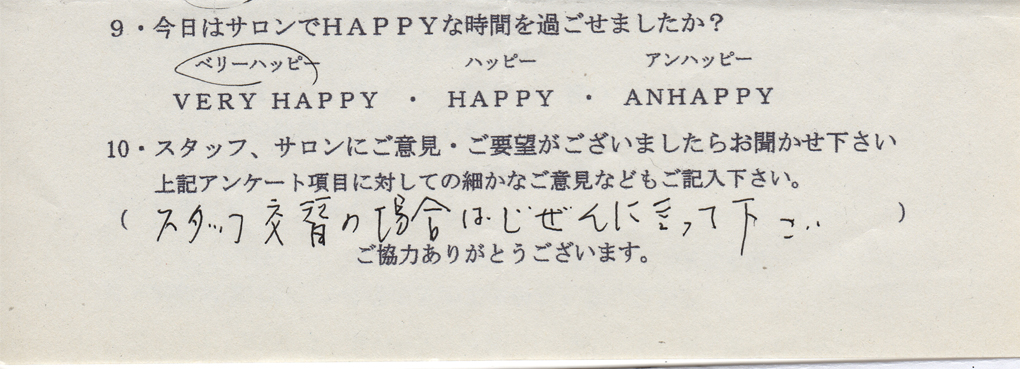 9・今日はサロンでHAPPYな時間を過ごせましたか？
ベリーハッピー ハッピー アンハッピー
VERY HAPPY ・ HAPPY ・ ANHAPPY
10・スタッフ、サロンにご意見・ご要望がございましたらお聞かせ下さい
上記アンケート項目に対しての細かなご意見などもご記入下さい。
（ スタッフ交替の場合はじぜんに言って下さい ）
ご協力ありがとうございます。